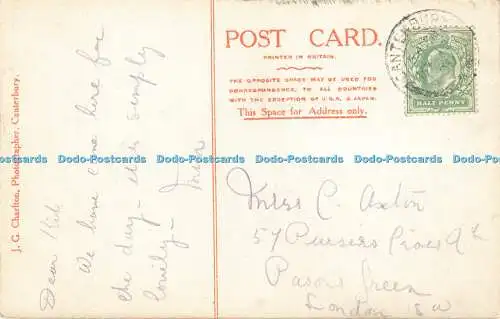 POST CARD.
PRINTED IN BRITAIN.
THE OPPOSITE SPACE MAY BE USED FOR
CORRESPONDENCE, TO ALL COUNTRIES
WITH THE EXCEPTION OF U.S.A. & JAPAN.
This Space for Address only.
CANTERBURY
HALF PENNY
J. G. Charlton, Photographer, Canterbury.
Dear
We have come here for
the day - it is simply
lovely -
Miss C. Axton
57 Pursers Cross Rd
Parsons Green
London SW
Dodo-Postcards Dodo-Postcards Dodo-Postcards Dodo-Postcards Dodo-Postcards Dodo-Postcards